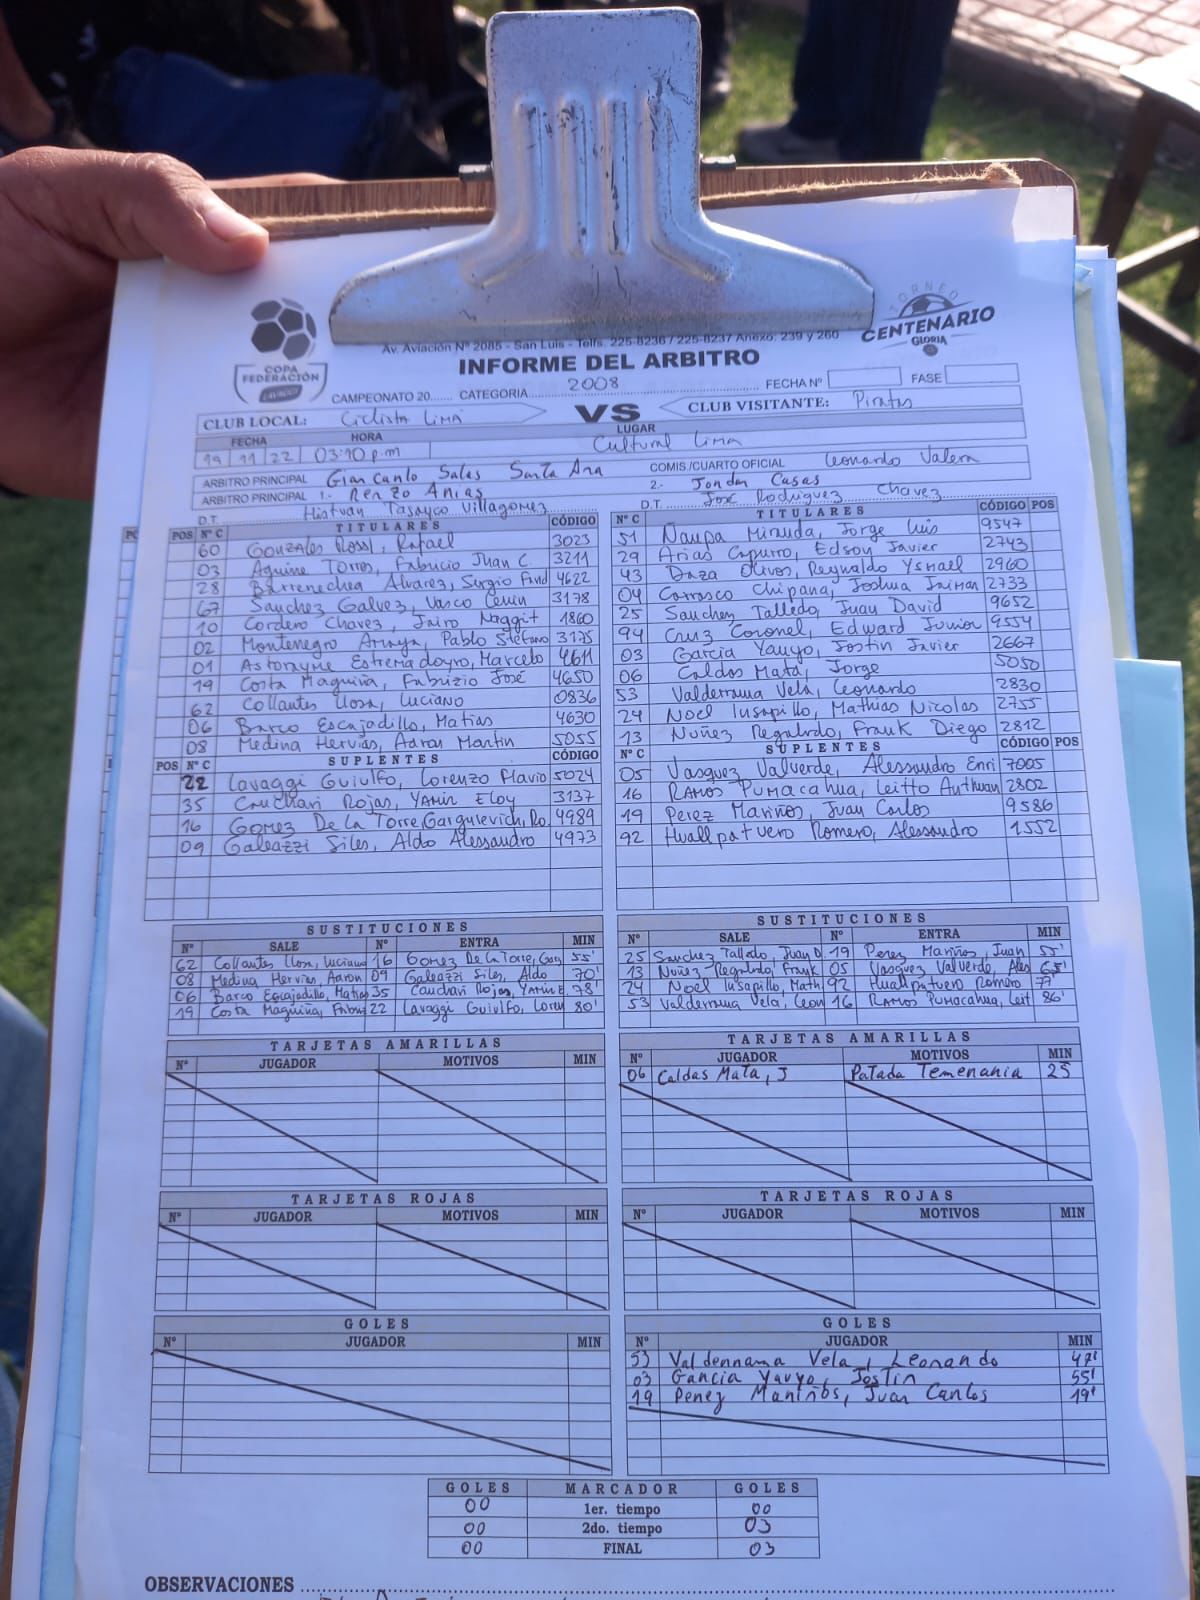 COPA
FEDERACIÓN
TORNEO
CENTENARIO
GLORIA
Av. Aviación Nº 2085 - San Luis - Telfs. 225-8236 / 225-8237 Anexo: 239 y 260
INFORME DEL ARBITRO
CAMPEONATO 20...... CATEGORIA 2008 FECHA Nº FASE
CLUB LOCAL: Ciclista Lima VS CLUB VISITANTE: Piratas
FECHA HORA LUGAR
19 11 22 03:10 p.m Cultural Lima
ARBITRO PRINCIPAL Gian Carlo Salas Santa Ana COMIS./CUARTO OFICIAL Leonardo Valera
ARBITRO PRINCIPAL 1.- Renzo Arias 2.- Jondar Casas
D.T. Histvan Tasayco Villagomez D.T. José Rodriguez Chavez
POS Nº C TITULARES CÓDIGO
60 Gonzales Rossi, Rafael 3023
03 Aguirre Torres, Fabricio Juan C 3211
28 Barrenechea Alvarez, Sergio 4622
67 Sanchez Galvez, Vasco Cenin 3178
10 Cordero Chavez, Jairo Naggit 1860
02 Montenegro Amaya, Pablo Stefano 3175
01 Astorayme Estremadoyro, Marcelo 4611
19 Costa Maguiña, Fabrizio José 4650
62 Collantes Llosa, Luciano 0836
06 Barco Escajadillo, Matias 4630
08 Medina Hervias, Aaron Martin 5055
POS Nº C SUPLENTES CÓDIGO
22 Lavaggi Guiulfo, Lorenzo Flavio 5024
35 Cauchari Rojas, Yamir Eloy 3137
16 Gomez De la Torre, Gargurevich, Ro. 4989
09 Galeazzi Siles, Aldo Alessandro 4973
Nº C TITULARES CÓDIGO POS
51 Ñaupa Miranda, Jorge Luis 9547
29 Arias Capurro, Edson Javier 2743
43 Daza Olivos, Reynaldo Ysmael 2960
04 Carrasco Chipana, Joshua Jaimar 2733
25 Sanchez Talledo, Juan David 9652
94 Cruz Coronel, Edward Junior 9554
03 Garcia Yauyo, Jostin Javier 2667
06 Caldas Mata, Jorge 5050
53 Valderrama Vela, Leonardo 2830
24 Noel Iusapillo, Mathias Nicolas 2755
13 Nuñez Regalado, Frank Diego 2812
Nº C SUPLENTES CÓDIGO POS
05 Vasquez Valverde, Alessandro Enri 7005
16 Ramos Pumacahua, Leitto Authuan 2802
19 Perez Mariños, Juan Carlos 9586
92 Huallpatuero Romero, Alessandro 1552
SUSTITUCIONES
Nº SALE Nº ENTRA MIN
62 Collantes Llosa, Luciano 16 Gomez De la Torre, Garg 55'
08 Medina Hervias, Aaron 09 Galeazzi Siles, Aldo 70'
06 Barco Escajadillo, Matias 35 Cauchari Rojas, Yamir E 78'
19 Costa Maguiña, Fabri 22 Lavaggi Guiulfo, Loren 80'
SUSTITUCIONES
Nº SALE Nº ENTRA MIN
25 Sanchez Talledo, Juan D 19 Perez Mariños, Juan 55'
13 Nuñez Regalado, Frank 05 Vasquez Valverde, Ales 65'
24 Noel Iusapillo, Math 92 Huallpatuero Romero 77'
53 Valderrama Vela, Leon 16 Ramos Pumacahua, Leit 86'
TARJETAS AMARILLAS
Nº JUGADOR MOTIVOS MIN
TARJETAS AMARILLAS
Nº JUGADOR MOTIVOS MIN
06 Caldas Mata, J Patada Temeraria 25
TARJETAS ROJAS
Nº JUGADOR MOTIVOS MIN
TARJETAS ROJAS
Nº JUGADOR MOTIVOS MIN
GOLES
Nº JUGADOR MIN
GOLES
Nº JUGADOR MIN
53 Valderrama Vela, Leonardo 47'
03 Garcia Yauyo, Jostin 55'
19 Perez Mariños, Juan Carlos 19'
GOLES MARCADOR GOLES
00 1er. tiempo 00
00 2do. tiempo 03
00 FINAL 03
OBSERVACIONES